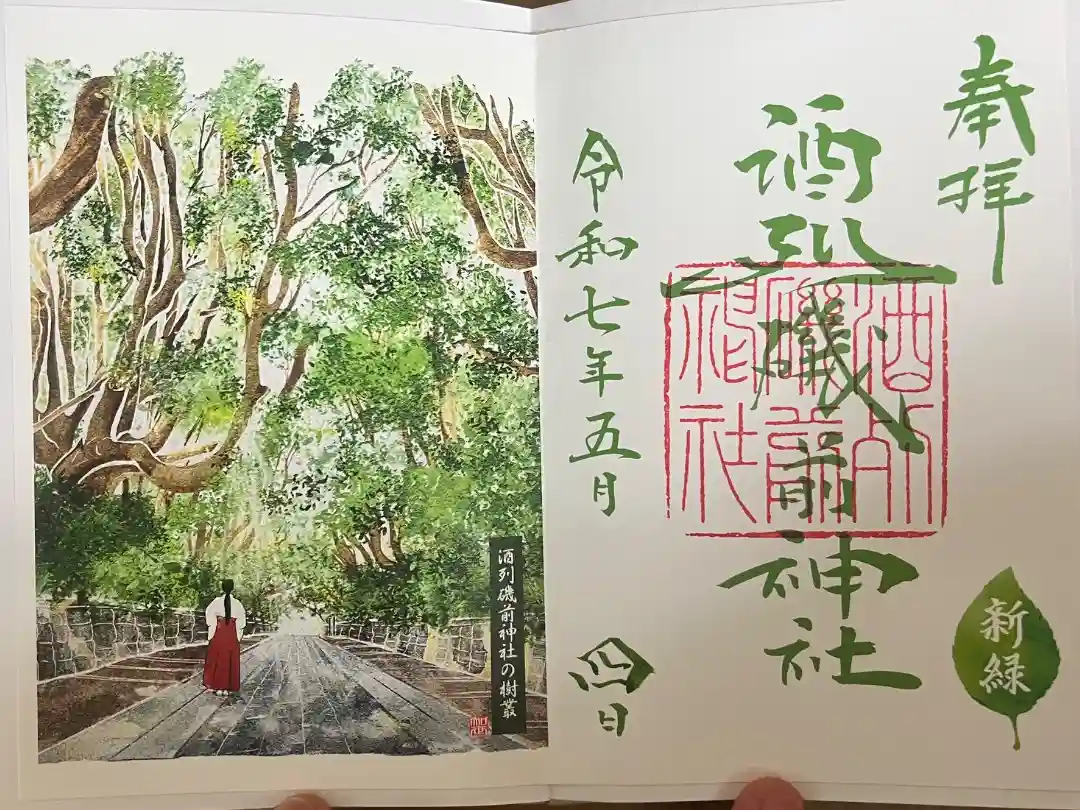 奉拝
酒列磯前神社
酒列
磯前
神社
新緑
令和七年五月四日
酒列磯前神社の樹叢